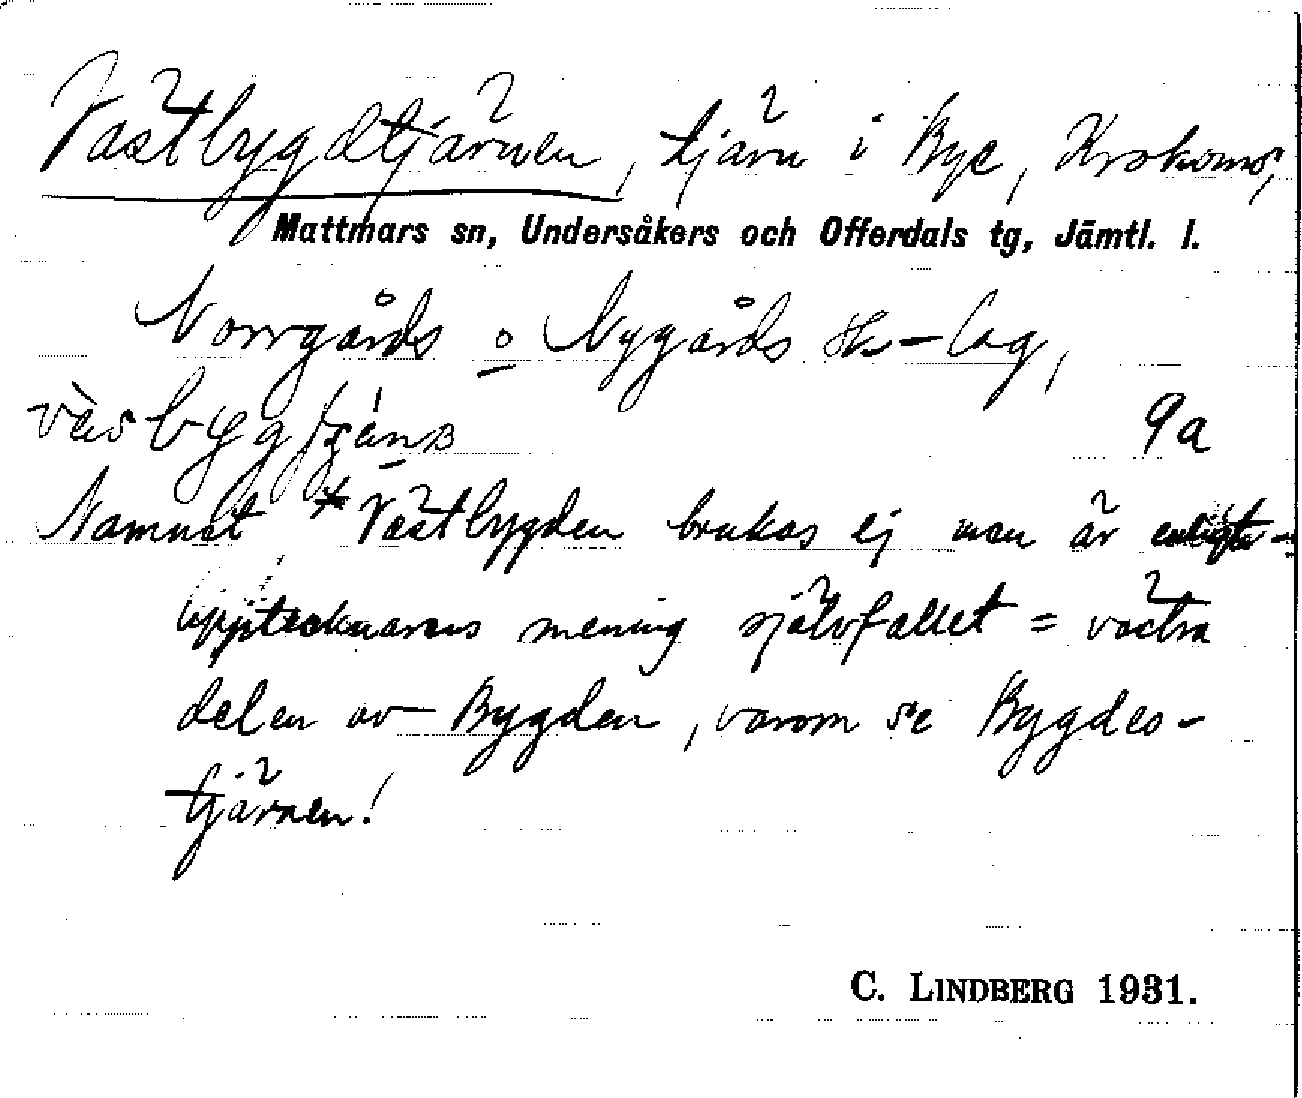 Västbygdtjärnen, tjärn i Bye, Krokoms,
Mattmars sn, Undersåkers och Offerdals tg, Jämtl. l.
Norrgårds o Nygårds sk-lag,
9a
Namnet *Västbygden brukas ej men är enligt
upptecknarens mening självfallet = västra
delen av Bygden, varom se Bygdes-
tjärnen!
C. LINDBERG 1931.